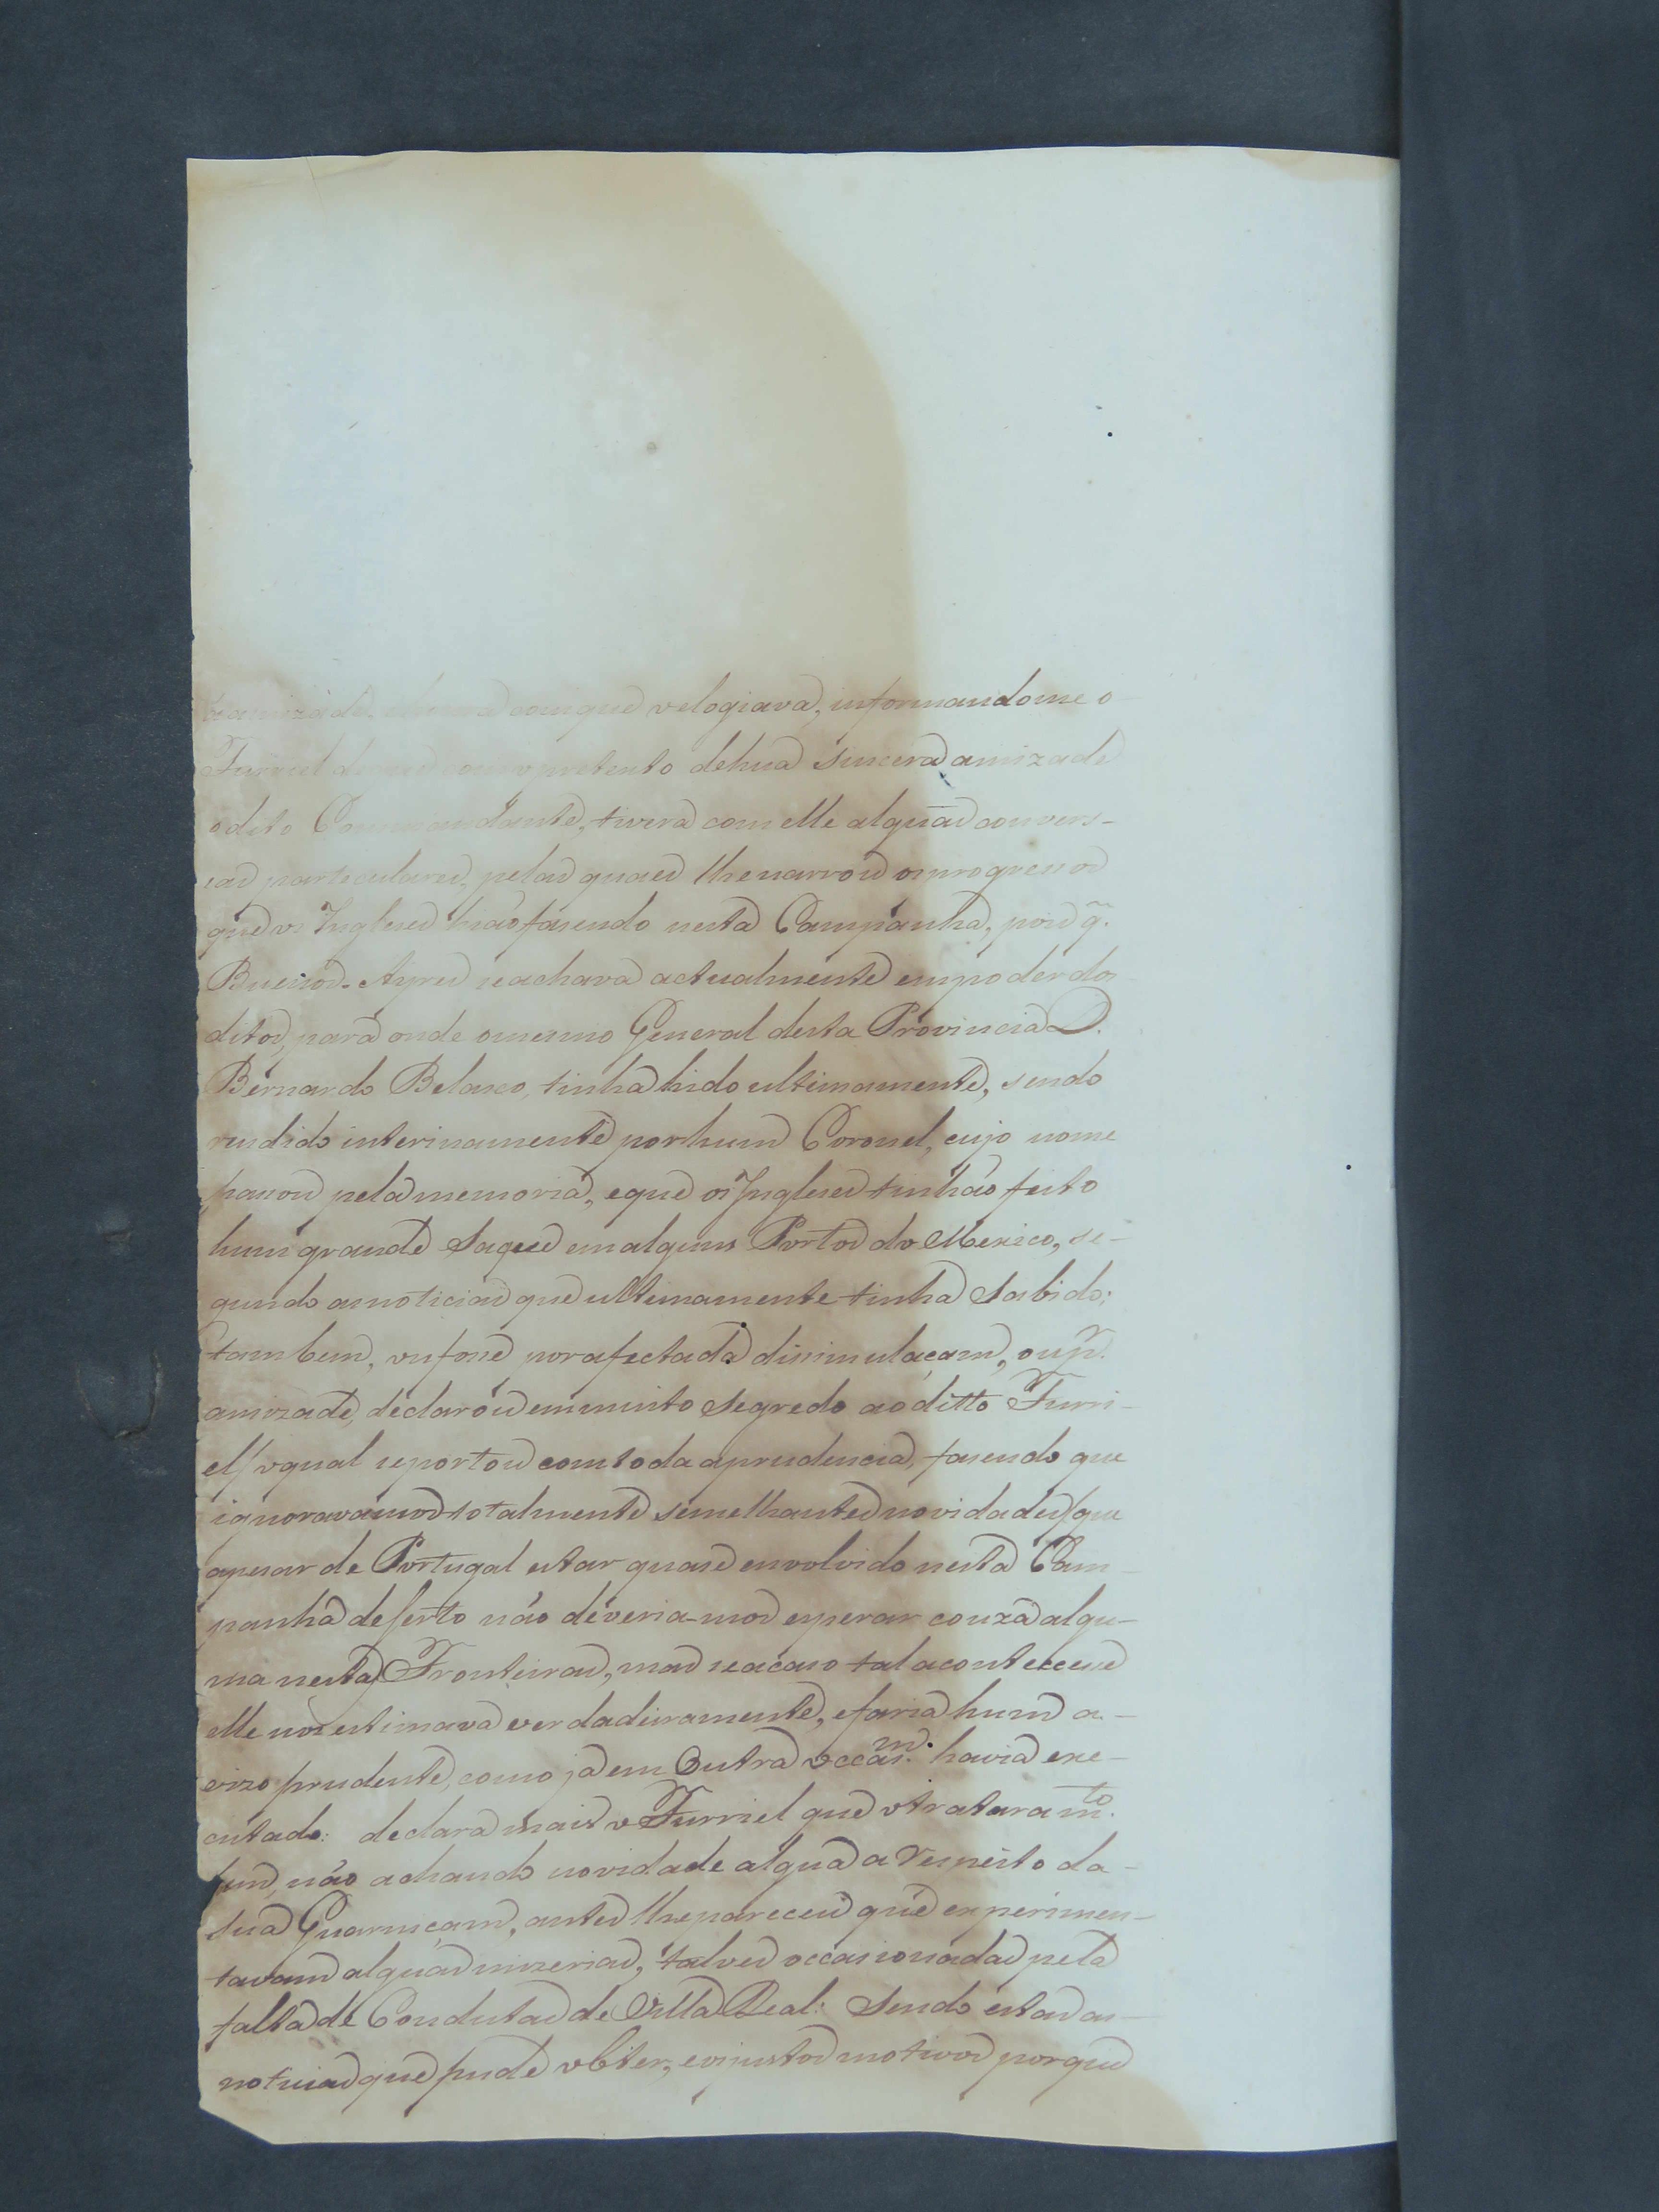 amizade, com que o elogiava, informandome o
Furriel de que com o pretexto de hua sincera amizade
o dito Commandante, tivera com elle alguãs convers-
sas particulares, pelas quaes lhe narrou os progressos
que os Inglezes hião fasendo nesta Campanha, pois q.̃
Buenos-Ayres se achava actualmente em poder dos
ditos, para onde o mesmo General desta Provincia D.
Bernardo Belasco, tinha hido ultimamente, sendo
rendido interinamente por hum Coronel, cujo nome
passou pela memoria, e que os Ingleses tinhão feito
hum grande Saque em alguns Portos do Mexico, se-
gundo as noticias que ultimamente tinha Sabido:
tambem, ou fosse por afectada dissimulaçam, ou p.r
amizade, declarou em muito Segredo ao ditto Furri-
el/ o qual se portou com toda a prudencia, fasendo que
ignoravamos totalmente semelhantes novidades/ que
apesar de Portugal estar quase envolvido nesta Cam-
panha de serto não deveria-mos esperar couza algu-
ma nestas Fronteiras, mas se acaso tal acontecece
elle nos estimava verdadeiramente, e faria hum a-
vizo prudente, como ja em Outra occas.m havia exe-
cutado: declara mais o Furriel que o tratara m.to
bem, não achando novidade algua a Respeito da
sua Guarniçam, antes lhe pareceu que experimen-
tavam alguãs mizerias, talves occasionadas pela
falta de Condutas de Villa Real: Sendo estas as
noticias que pude obter, e os justos motivos porque